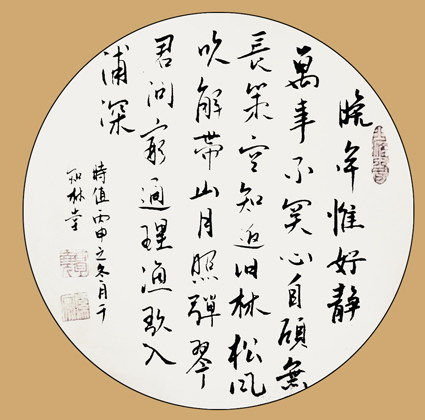 晚年惟好静
萬事不关心自顾無
長策空知返旧林松风
吹解帶山月照彈琴
君问窮通理漁歌入
浦深
時值丙申之冬月于
林堂